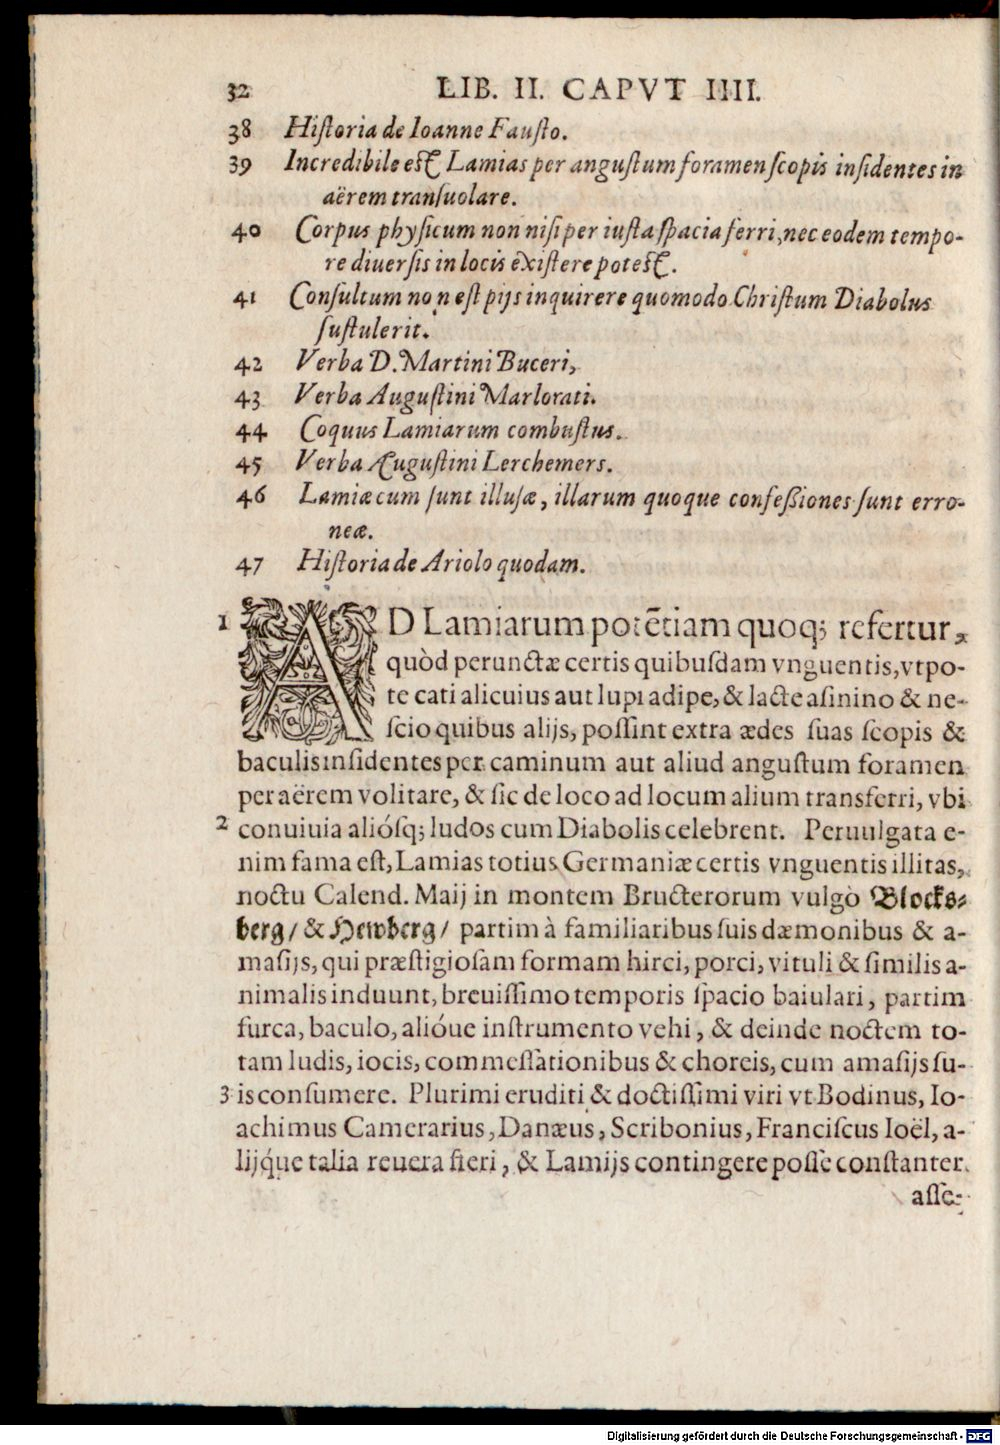 32 LIB. II. CAPVT IIII.
38 Hiſtoria de Ioanne Fauſto.
39 Incredibile eſt Lamias per anguſtum foramen ſcopis inſidentes in
aërem tranſuolare.
40 Corpus phyſicum non niſi per iuſta ſpacia ferri, nec eodem tempo-
re diuerſis in locis exiſtere poteſt.
41 Conſultum non eſt pijs inquirere quomodo Chriſtum Diabolus
ſuſtulerit.
42 Verba D. Martini Buceri,
43 Verba Auguſtini Marlorati.
44 Coquus Lamiarum combuſtus.
45 Verba Auguſtini Lerchemers.
46 Lamiæ cum ſunt illuſæ, illarum quoque confeſſiones ſunt erro-
neæ.
47 Hiſtoria de Ariolo quodam.
1 AD Lamiarum potẽtiam quoq; refertur,
quòd perunctæ certis quibuſdam vnguentis, vtpo-
te cati alicuius aut lupi adipe, & lacte aſinino & ne-
ſcio quibus alijs, poſſint extra ædes ſuas ſcopis &
baculis inſidentes per caminum aut aliud anguſtum foramen
per aërem volitare, & ſic de loco ad locum alium transferri, vbi
2 conuiuia aliósq; ludos cum Diabolis celebrent. Peruulgata e-
nim fama eſt, Lamias totius Germaniæ certis vnguentis illitas,
noctu Calend. Maij in montem Bructerorum vulgò Blocks-
berg/ & Hewberg/ partim à familiaribus ſuis dæmonibus & a-
maſijs, qui præſtigioſam formam hirci, porci, vituli & ſimilis a-
nimalis induunt, breuiſſimo temporis ſpacio baiulari, partim
furca, baculo, alióue inſtrumento vehi, & deinde noctem to-
tam ludis, iocis, commeſſationibus & choreis, cum amaſijs ſu-
3 is conſumere. Plurimi eruditi & doctiſſimi viri vt Bodinus, Io-
achimus Camerarius, Danæus, Scribonius, Franciſcus Ioël, a-
lijq́ue talia reuera fieri, & Lamijs contingere poſſe conſtanter
aſſe-
Digitalisierung gefördert durch die Deutsche Forschungsgemeinschaft - DFG